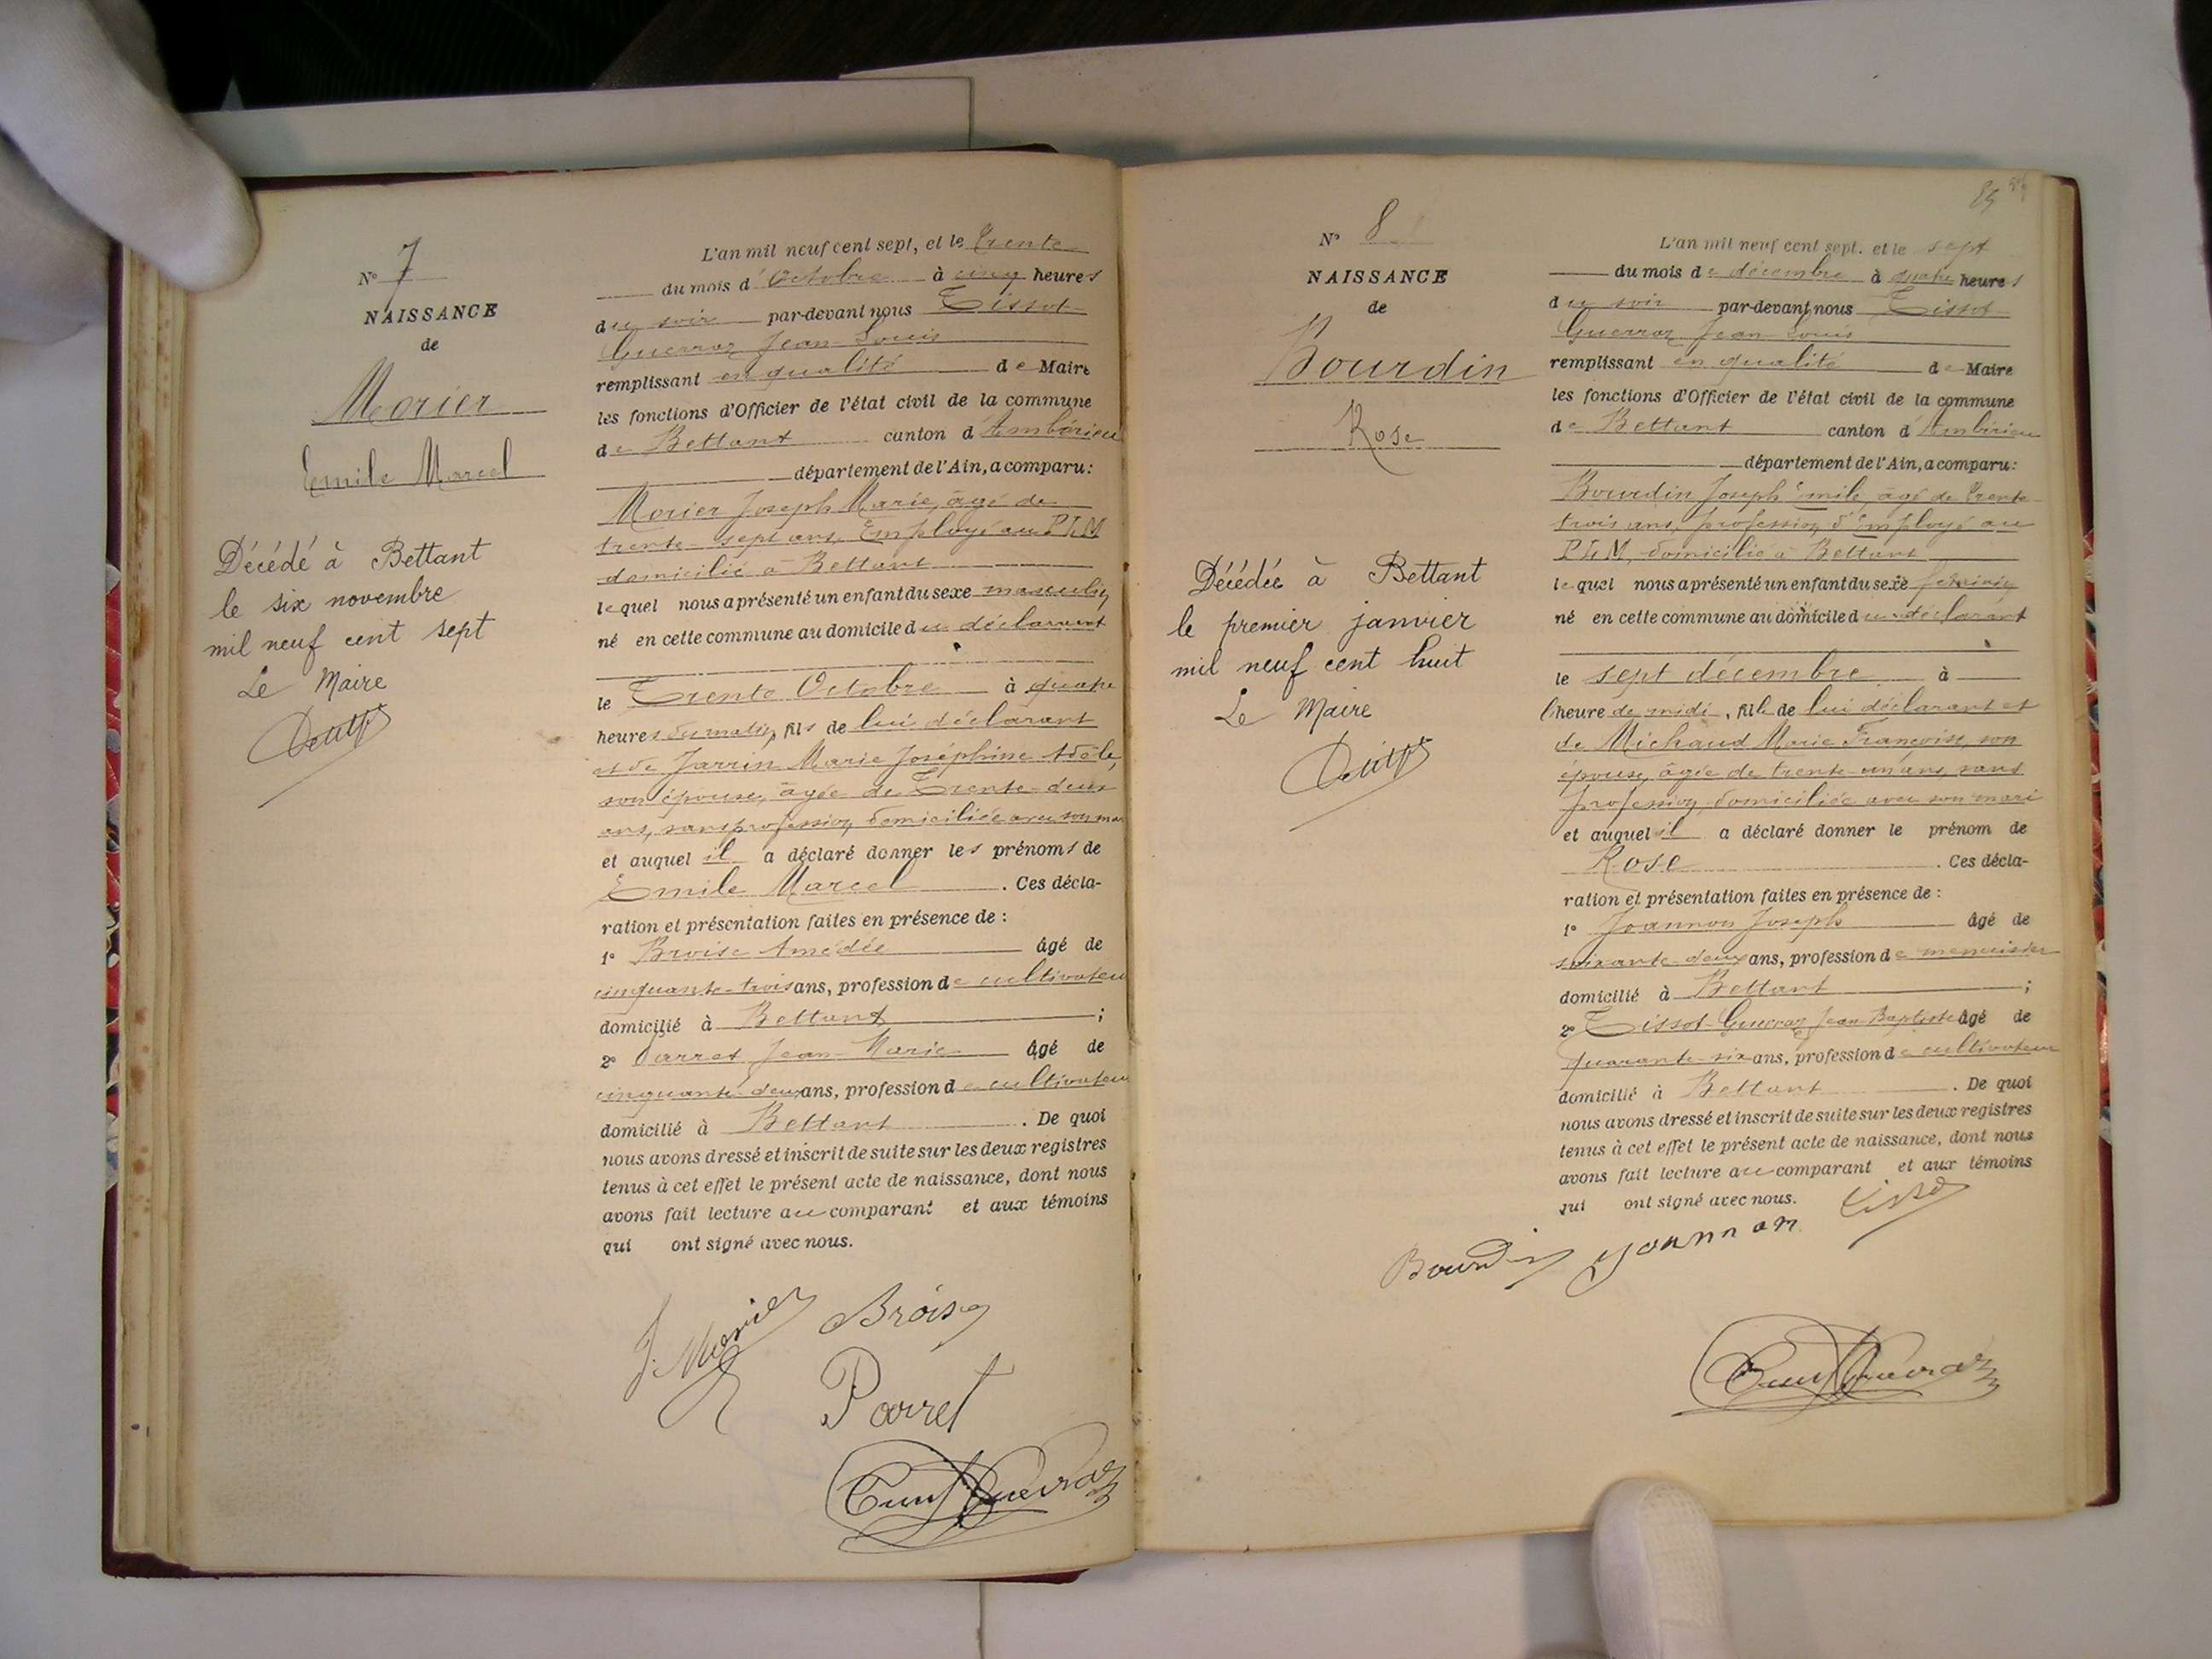 N° 7
NAISSANCE
de
Morier
Emile Marcel
Décédé à Bettant
le six novembre
mil neuf cent sept
Le Maire
L'an mil neuf cent sept, et le trente
du mois d'Octobre à cinq heures
du soir par-devant nous Tissot
Guerraz Jean-Louis
remplissant en qualité de Maire
les fonctions d'Officier de l'état civil de la commune
de Bettant canton d'Ambérieu
département de l'Ain, a comparu :
Morier Joseph Marie, âgé de
trente-sept ans, Employé au PLM
domicilié à Bettant
lequel nous a présenté un enfant du sexe masculin
né en cette commune au domicile du déclarant
le Trente Octobre à quatre
heures du matin, fils de lui déclarant
et de Jarrin Marie Joséphine Adèle,
son épouse, âgée de Trente-deux
ans, sans profession, domiciliée avec son mari
et auquel il a déclaré donner les prénoms de
Emile Marcel. Ces décla-
ration et présentation faites en présence de :
1° Broise Amédée âgé de
cinquante-trois ans, profession de cultivateur
domicilié à Bettant ;
2° Parret Jean-Marie âgé de
cinquante-deux ans, profession de cultivateur
domicilié à Bettant. De quoi
nous avons dressé et inscrit de suite sur les deux registres
tenus à cet effet le présent acte de naissance, dont nous
avons fait lecture au comparant et aux témoins
qui ont signé avec nous.
J. Morier Broise
Parret
85
N° 8
NAISSANCE
de
Bourdin
Rose
Décédée à Bettant
le premier janvier
mil neuf cent huit
Le Maire
L'an mil neuf cent sept, et le sept
du mois de décembre à quatre heures
du soir par-devant nous Tissot
Guerraz Jean Louis
remplissant en qualité de Maire
les fonctions d'Officier de l'état civil de la commune
de Bettant canton d'Ambérieu
département de l'Ain, a comparu :
Bourdin Joseph Emile, âgé de trente-
trois ans, profession d'Employé au
PLM, domicilié à Bettant
lequel nous a présenté un enfant du sexe féminin
né en cette commune au domicile du déclarant
le sept décembre à
l'heure de midi, fille de lui déclarant et
de Michaud Marie Françoise, son
épouse, âgée de trente-un ans, sans
profession, domiciliée avec son mari
et auquel il a déclaré donner le prénom de
Rose. Ces décla-
ration et présentation faites en présence de :
1° Joannon Joseph âgé de
soixante-deux ans, profession de menuisier
domicilié à Bettant ;
2° Tissot-Guerraz Jean-Baptiste âgé de
quarante-six ans, profession de cultivateur
domicilié à Bettant. De quoi
nous avons dressé et inscrit de suite sur les deux registres
tenus à cet effet le présent acte de naissance, dont nous
avons fait lecture au comparant et aux témoins
qui ont signé avec nous.
Bourdin Joannon Tissot